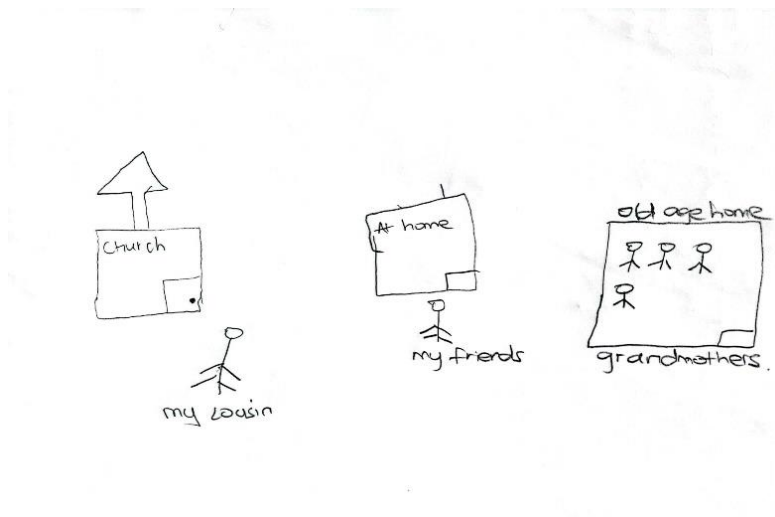 Church
my cousin
At home
my friends
old age home
grandmothers.